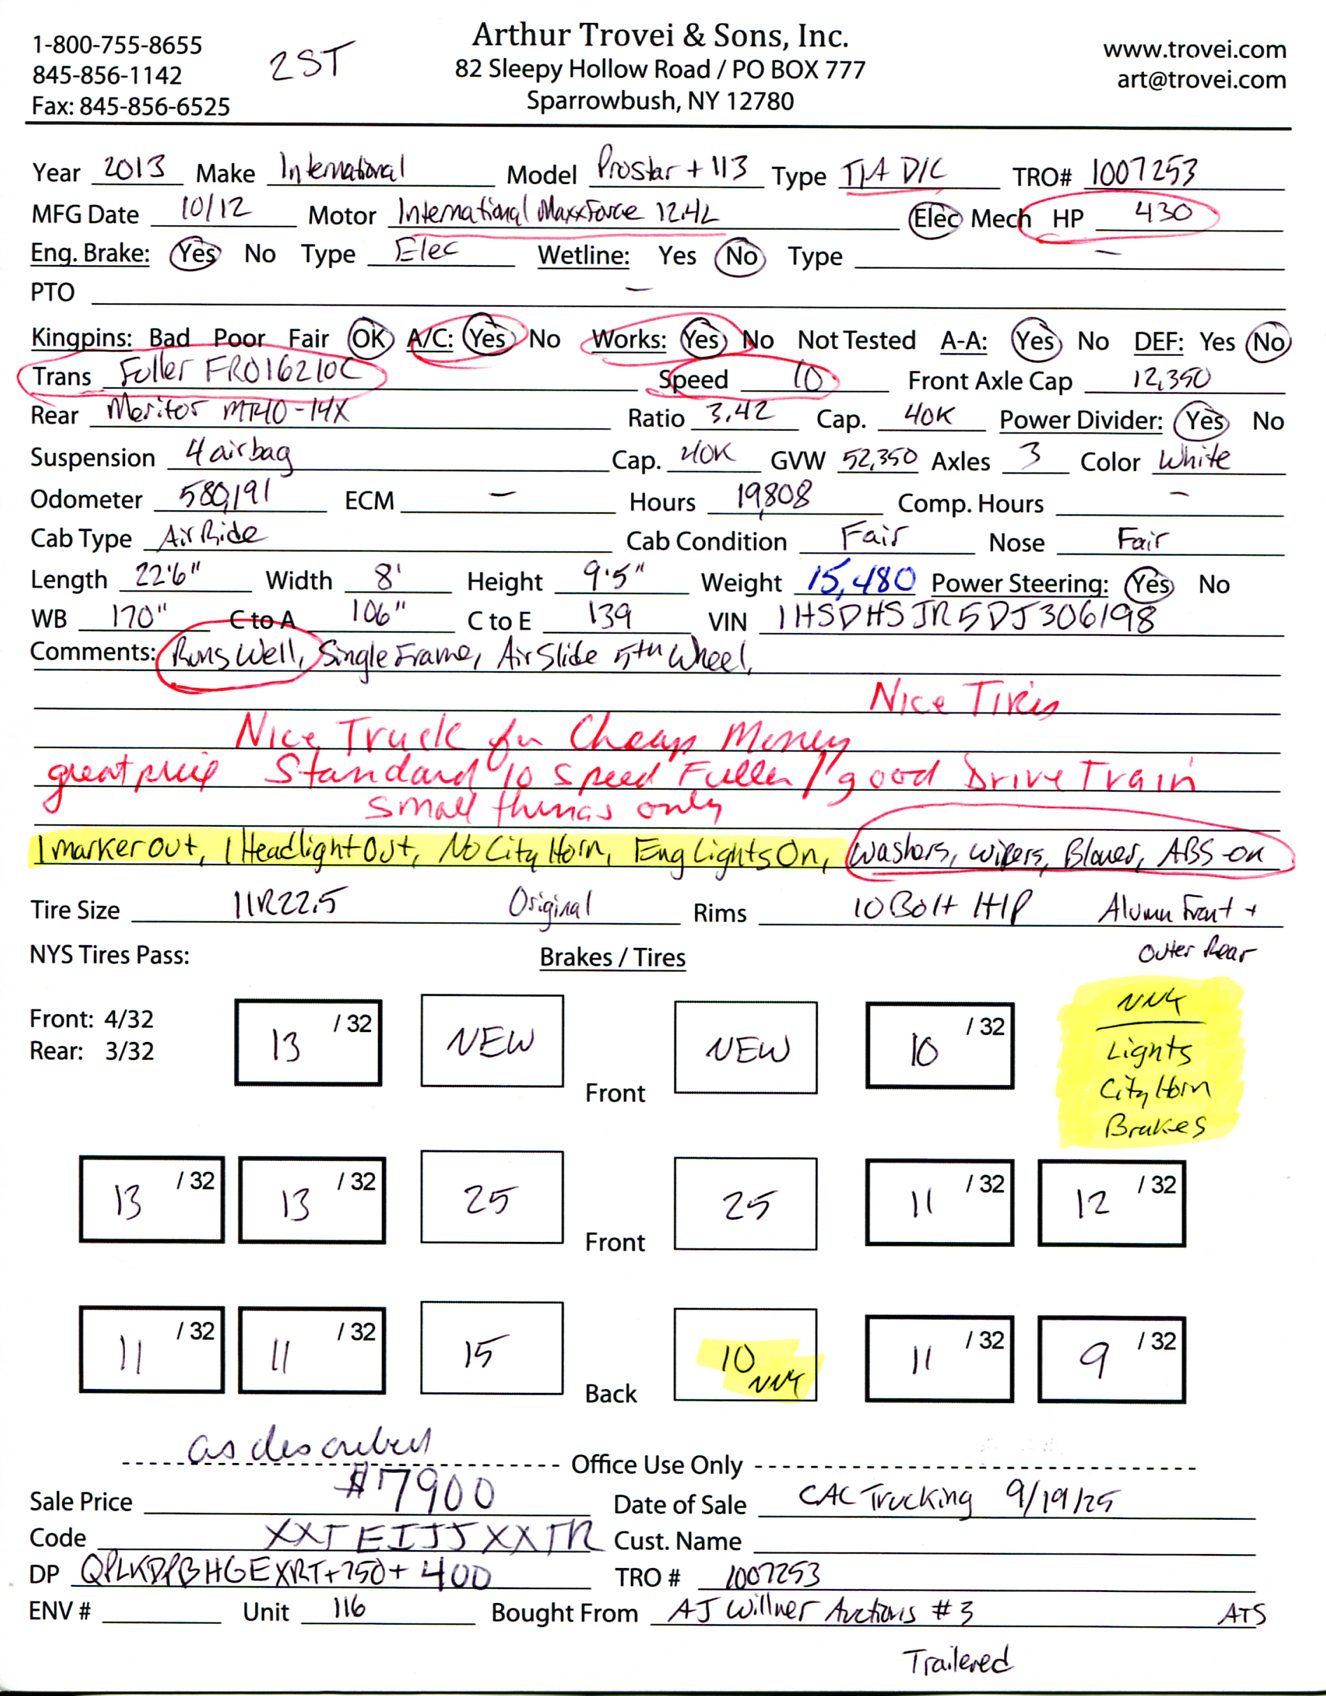 1-800-755-8655
845-856-1142
Fax: 845-856-6525
2ST
Arthur Trovei & Sons, Inc.
82 Sleepy Hollow Road / PO BOX 777
Sparrowbush, NY 12780
www.trovei.com
art@trovei.com
Year 2013 Make International Model Prostar + 113 Type T/A D/C TRO# 1007253
MFG Date 10/12 Motor International Maxxforce 12.4L Elec Mech HP 430
Eng. Brake: Yes No Type Elec Wetline: Yes No Type —
PTO —
Kingpins: Bad Poor Fair OK A/C: Yes No Works: Yes No Not Tested A-A: Yes No DEF: Yes No
Trans Fuller FRO16210C Speed 10 Front Axle Cap 12,350
Rear Meritor MT40-14X Ratio 3.42 Cap. 40K Power Divider: Yes No
Suspension 4 airbag Cap. 40K GVW 52,350 Axles 3 Color White
Odometer 580,191 ECM — Hours 19,808 Comp. Hours —
Cab Type Air Ride Cab Condition Fair Nose Fair
Length 22'6" Width 8' Height 9'5" Weight 15,480 Power Steering: Yes No
WB 170" C to A 106" C to E 139 VIN 1HSDHSJR5DJ306198
Comments: Runs Well, Single Frame, Air Slide 5th Wheel,
Nice Tires
Nice Truck for Cheap Money
great price Standard 10 Speed Fuller / good Drive Train
small things only
1 marker out, 1 Headlight Out, No City Horn, Eng Lights On, Washers, Wipers, Blower, ABS on
Tire Size 11R22.5 Original Rims 10 Bolt HP Alumn Front +
Outer Rear
NYS Tires Pass: Brakes / Tires
Front: 4/32
Rear: 3/32
13 /32 NEW Front NEW 10 /32
NNY
Lights
City Horn
Brakes
13 /32 13 /32 25 Front 25 11 /32 12 /32
11 /32 11 /32 15 Back 10 NNY 11 /32 9 /32
as described
Office Use Only
Sale Price $7900 Date of Sale CAC Trucking 9/19/25
Code XXTEIJJXXTR Cust. Name
DP QPLKDPBHGEXRT+750+400 TRO # 1007253
ENV # Unit 116 Bought From AJ Willner Auctions #3 ATS
Trailered